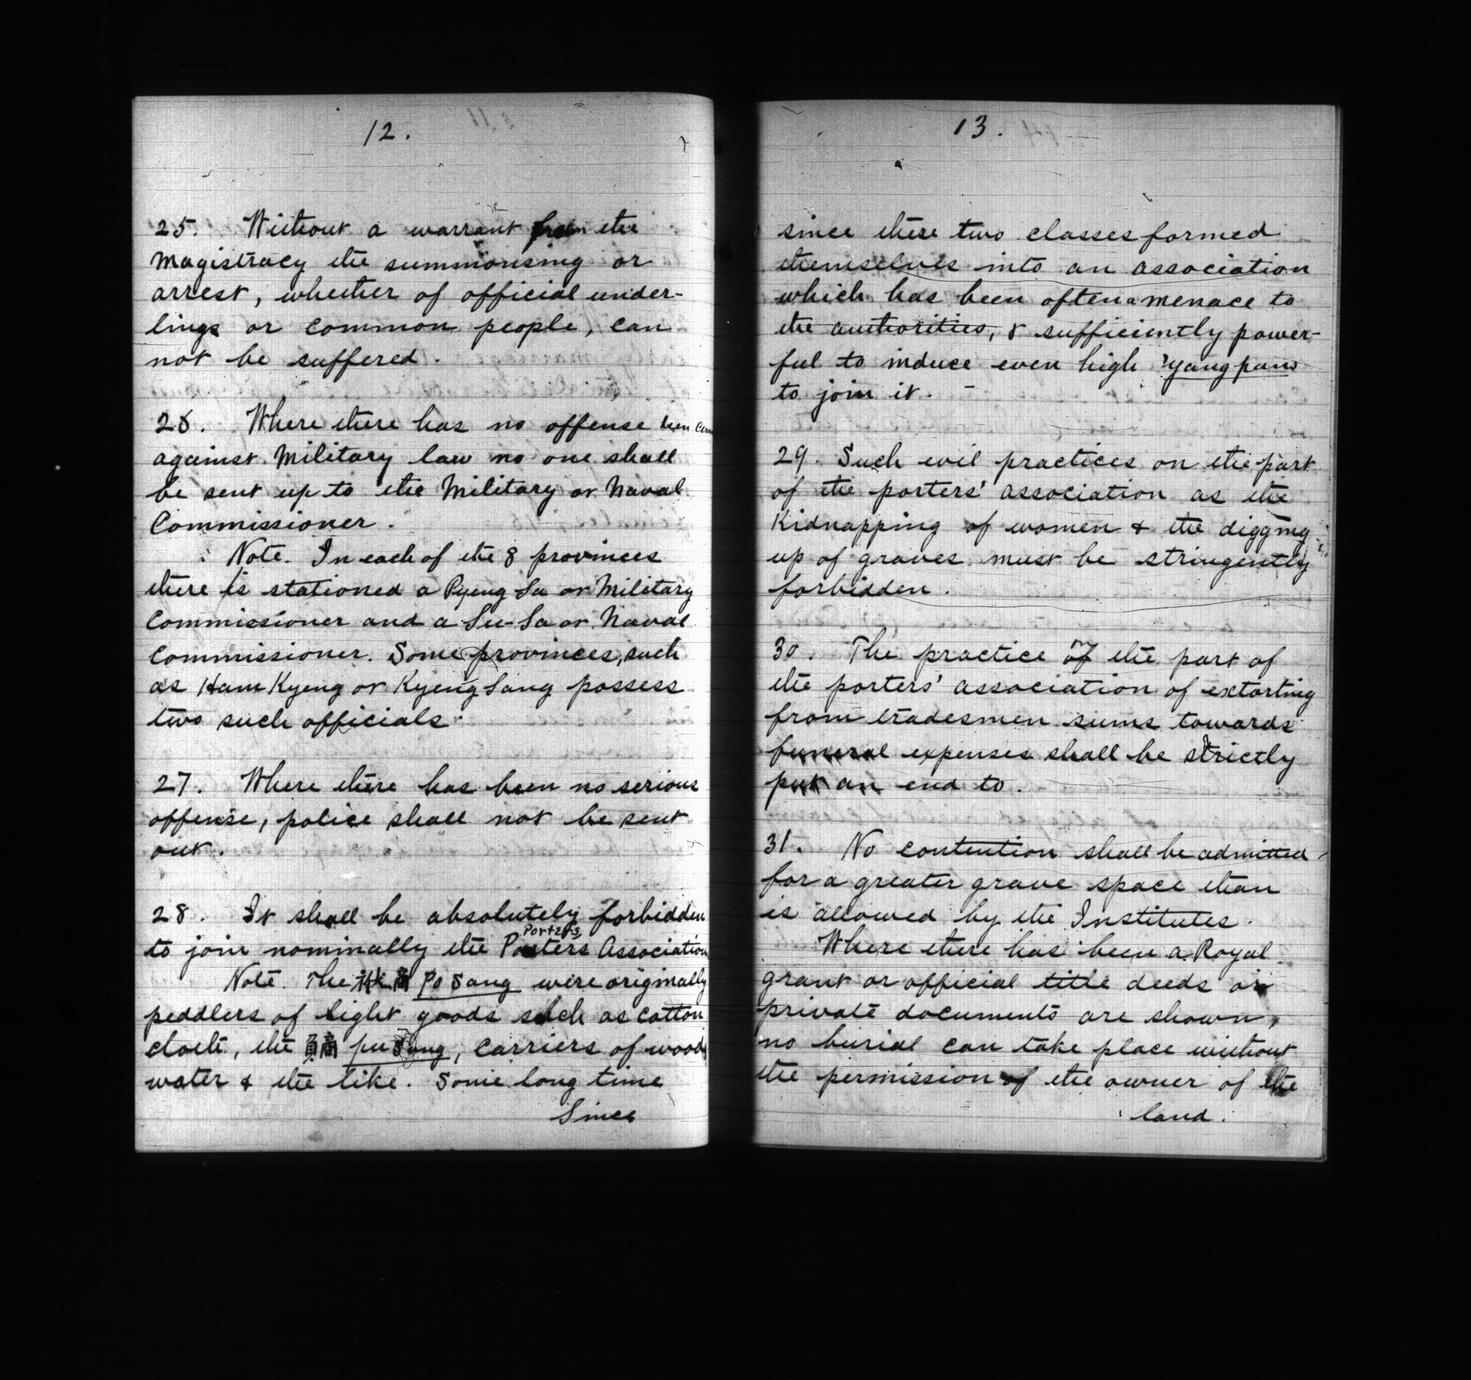 12.
25. Without a warrant from the
magistracy the summonsing or
arrest, whether of official under-
lings or common people, can
not be suffered.
26. Where there has no offense been
against Military law no one shall
be sent up to the Military or Naval
Commissioner.
Note. In each of the 8 provinces
there is stationed a Pyeng-Sa or Military
Commissioner and a Su-Sa or Naval
Commissioner. Some provinces, such
as Ham Kyeng or Kyeng Sang possess
two such officials.
27. Where there has been no serious
offense, police shall not be sent
out.
28. It shall be absolutely forbidden
Porters
to join nominally the Porters Association
Note. The 商 Po Sang were originally
peddlers of light goods such as cotton
cloth, the 負商 pu Sang, carriers of wood,
water & the like. Some long time
Since
13.
since these two classes formed
themselves into an association
which has been often a menace to
the authorities, & sufficiently power-
ful to induce even high 'yang pans
to join it.
29. Such evil practices on the part
of the porters' association as the
Kidnapping of women & the digging
up of graves must be stringently
forbidden.
30. The practice on the part of
the porters' association of extorting
from tradesmen sums towards
funeral expenses shall be strictly
put an end to.
31. No contention shall be admitted
for a greater grave space than
is allowed by the Institutes.
Where there has been a Royal
grant or official title deeds or
private documents are shown,
no burial can take place without
the permission of the owner of the
land.